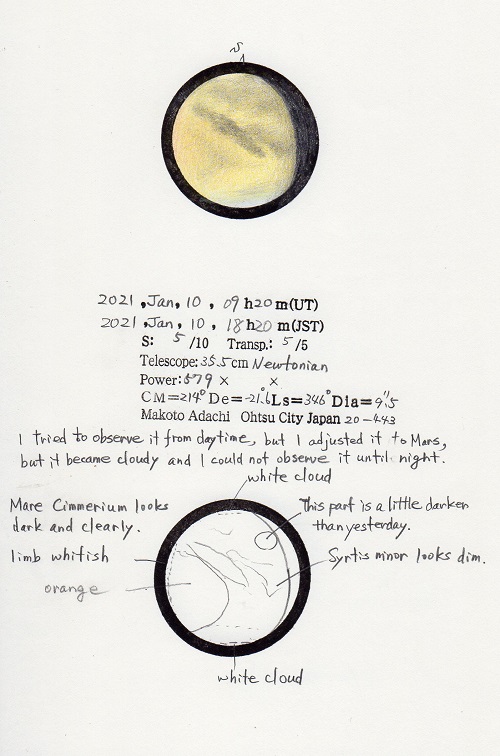 S
2021, Jan, 10, 09 h 20 m (UT)
2021, Jan, 10, 18 h 20 m (JST)
S: 5 /10 Transp.: 5 /5
Telescope: 35.5 cm Newtonian
Power: 579 × ×
CM=214° De=-21.6° Ls=346° Dia=9".5
Makoto Adachi Ohtsu City Japan 20-443
I tried to observe it from daytime, but I adjusted it to Mars,
but it became cloudy and I could not observe it until night.
white cloud
Mare Cimmerium looks
dark and clearly.
This part is a little darker
than yesterday.
limb whitish
Syrtis minor looks dim.
orange
white cloud